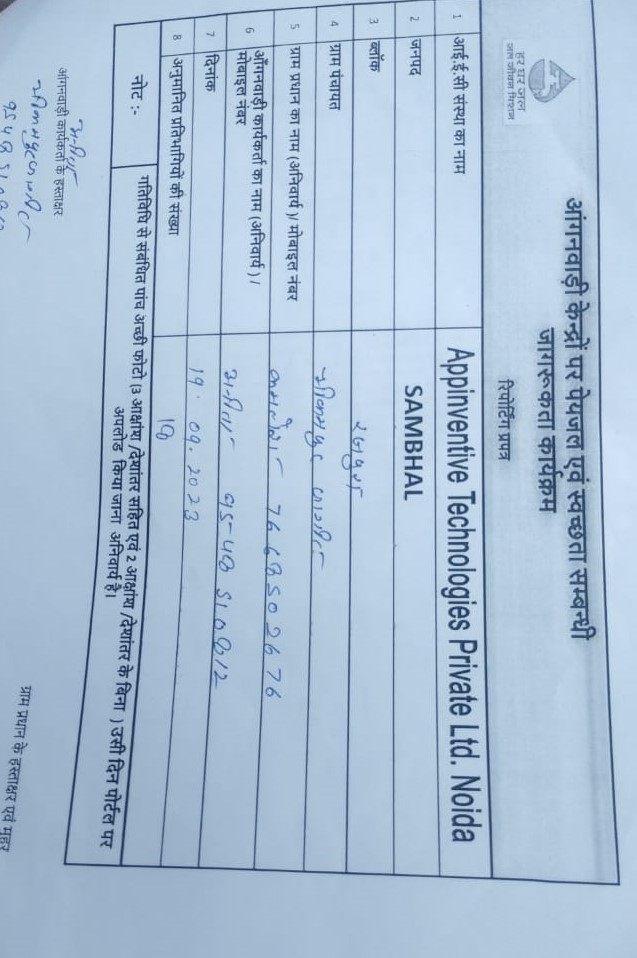 हर घर जल
जल जीवन मिशन
आंगनवाड़ी केन्द्रों पर पेयजल एवं स्वच्छता सम्बन्धी
जागरूकता कार्यक्रम
रिपोर्टिंग प्रपत्र
1 आई.ई.सी संस्था का नाम Appinventive Technologies Private Ltd. Noida
2 जनपद SAMBHAL
3 ब्लॉक रजपुरा
4 ग्राम पंचायत
5 ग्राम प्रधान का नाम (अनिवार्य )/ मोबाइल नंबर
6 आँगनवाड़ी कार्यकर्ता का नाम (अनिवार्य )/
मोबाइल नंबर
7 दिनांक 19.09.2023
8 अनुमानित प्रतिभागियों की संख्या
नोट :- गतिविधि से संबंधित पांच अच्छी फोटो (3 आक्षांश /देशांतर सहित एवं 2 आक्षांश /देशांतर के बिना ) उसी दिन पोर्टल पर
अपलोड किया जाना अनिवार्य है।
आंगनवाड़ी कार्यकर्ता के हस्ताक्षर
ग्राम प्रधान के हस्ताक्षर एवं मुहर